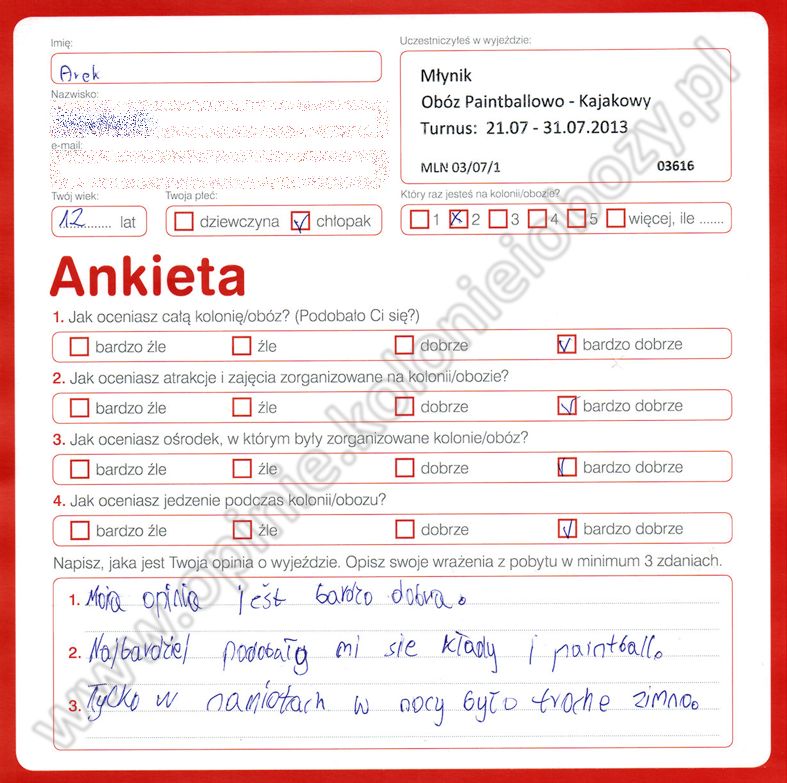 Imię:
Arek
Nazwisko:
e-mail:
Twój wiek:
12 ........ lat
Twoja płeć:
dziewczyna chłopak
Uczestniczyłeś w wyjeździe:
Młynik
Obóz Paintballowo - Kajakowy
Turnus: 21.07 - 31.07.2013
MLN 03/07/1 03616
Który raz jesteś na kolonii/obozie?
1 2 3 4 5 więcej, ile .......
Ankieta
1. Jak oceniasz całą kolonię/obóz? (Podobało Ci się?)
bardzo źle źle dobrze bardzo dobrze
2. Jak oceniasz atrakcje i zajęcia zorganizowane na kolonii/obozie?
bardzo źle źle dobrze bardzo dobrze
3. Jak oceniasz ośrodek, w którym były zorganizowane kolonie/obóz?
bardzo źle źle dobrze bardzo dobrze
4. Jak oceniasz jedzenie podczas kolonii/obozu?
bardzo źle źle dobrze bardzo dobrze
Napisz, jaka jest Twoja opinia o wyjeździe. Opisz swoje wrażenia z pobytu w minimum 3 zdaniach.
1. Moja opinia jest bardzo dobra.
2. Najbardziej podobały mi sie kłady i paintball.
3. Tylko w namiotach w nocy było troche zimno.
www.opinie.kolonieiobozy.pl